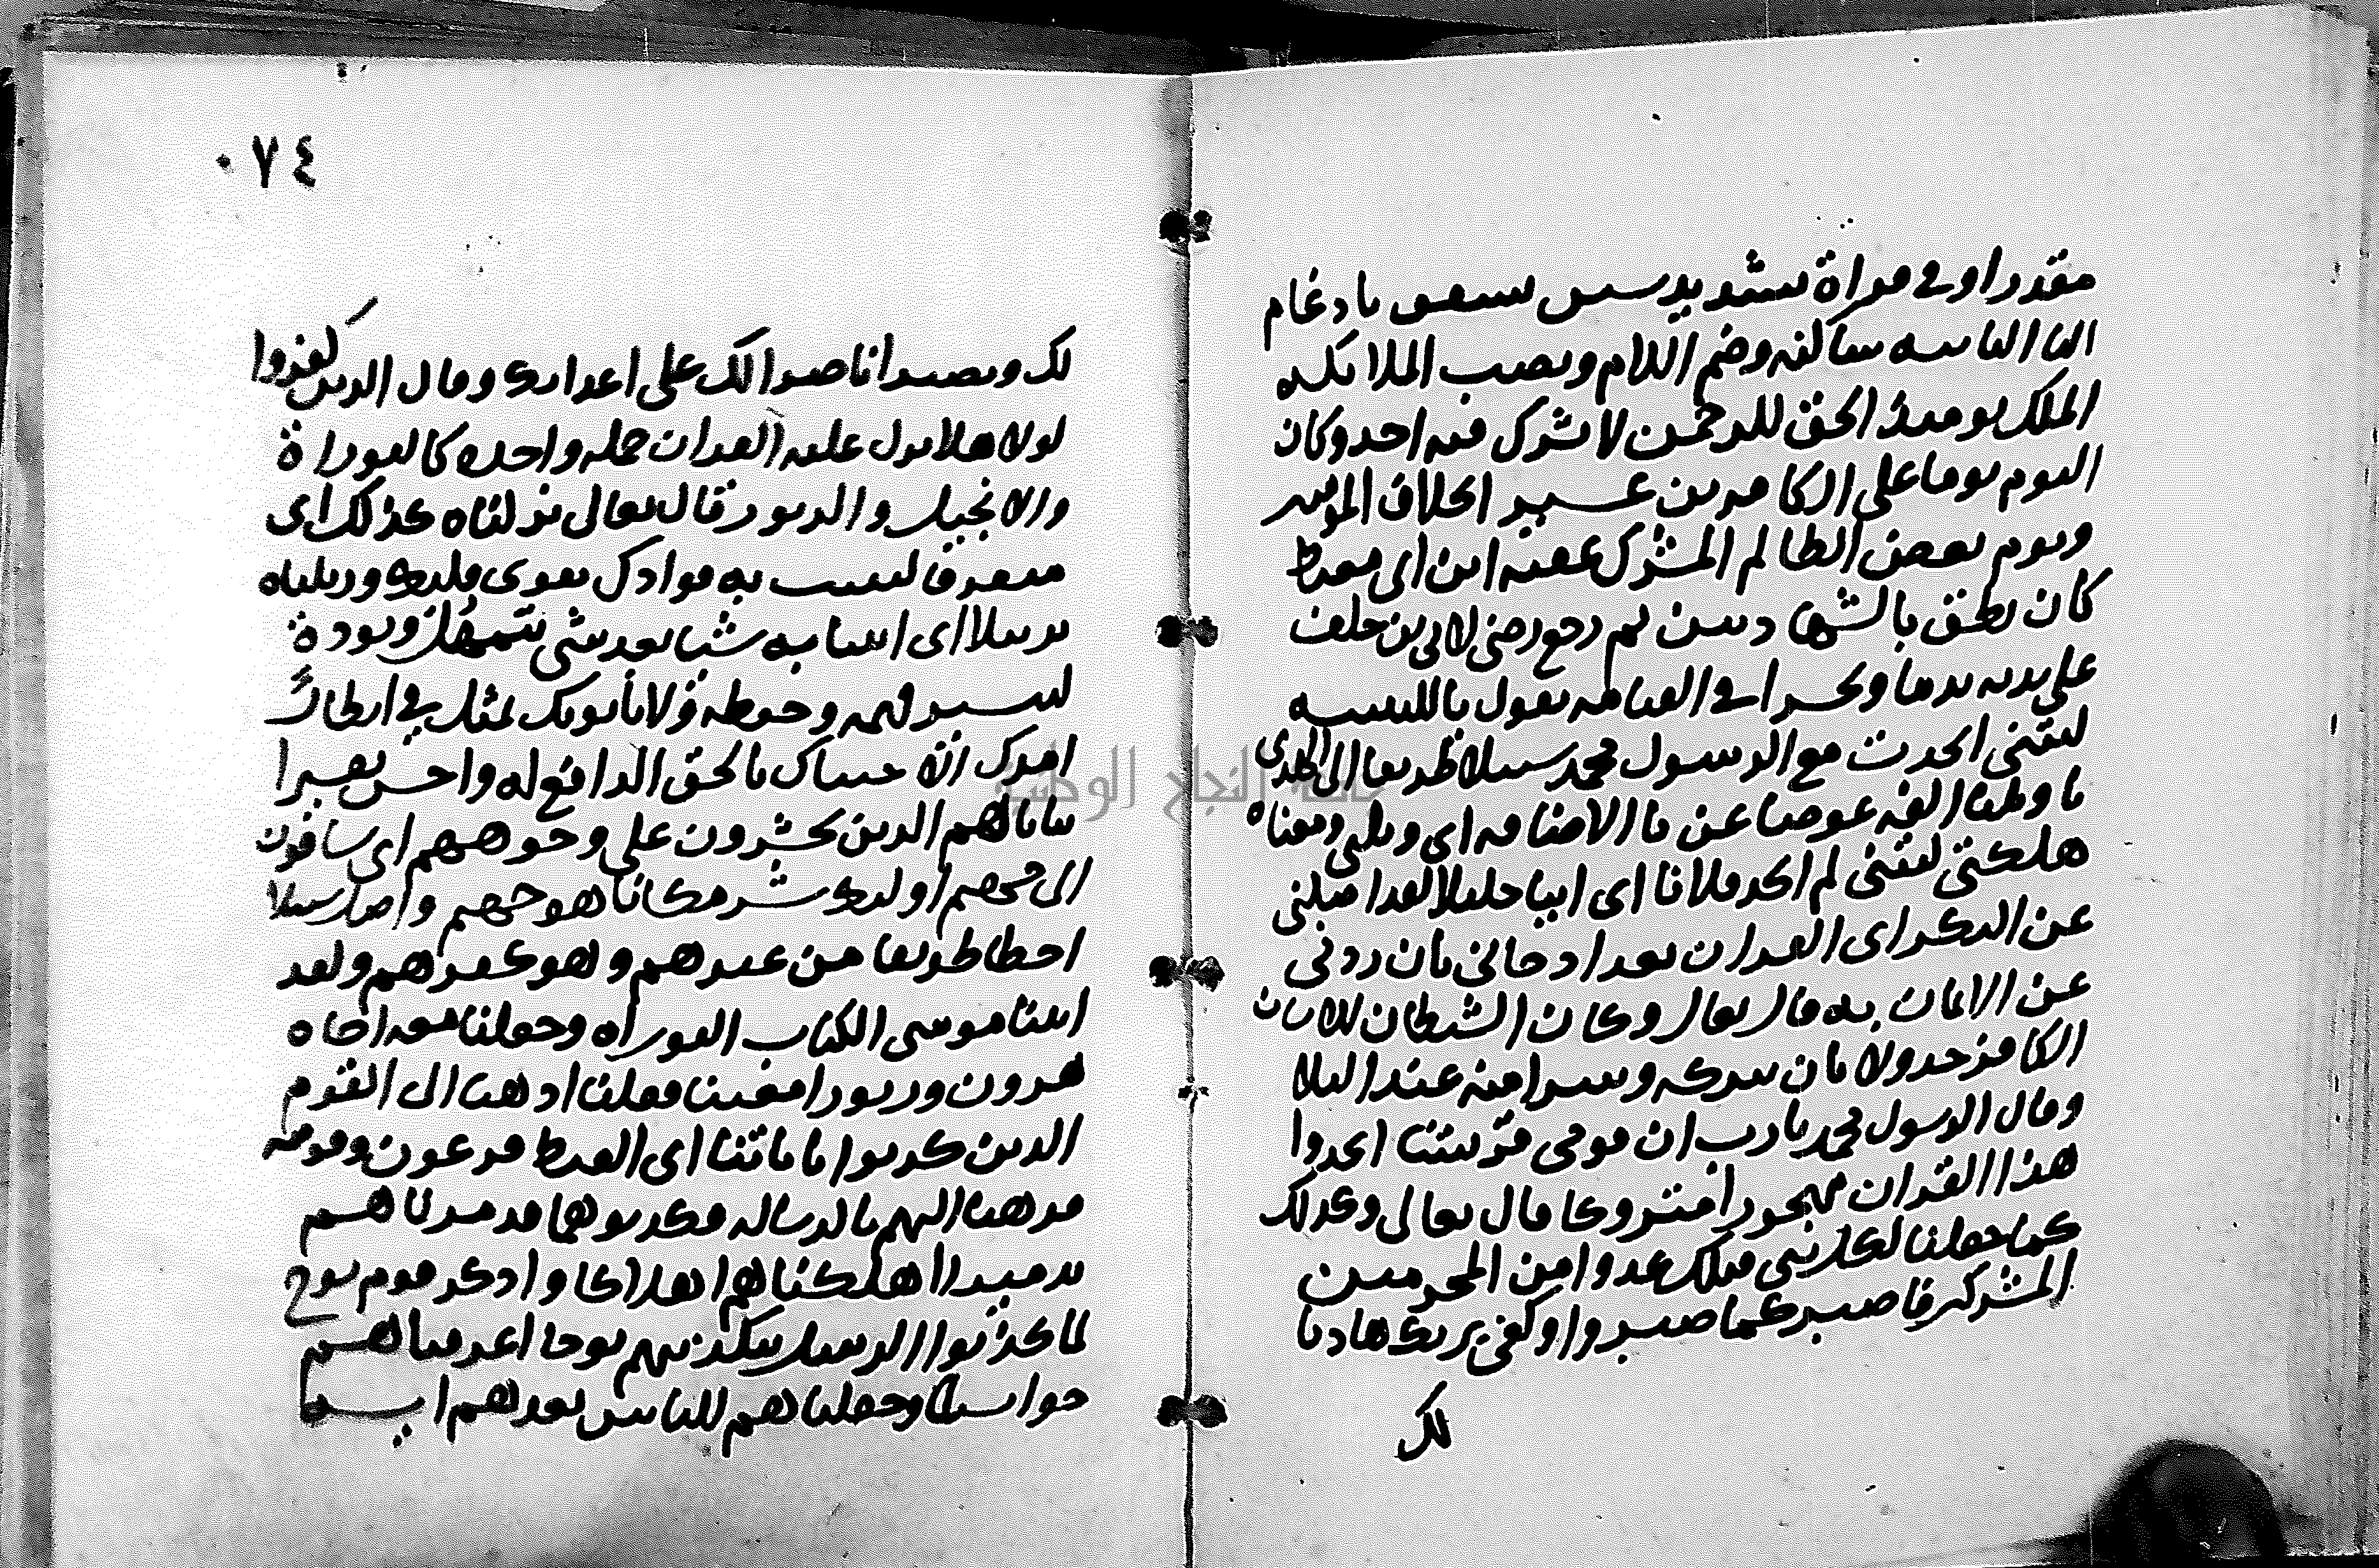 مقدرا وفى قراة بتشديد سين تشقق بادغام
التا الثانيه ساكنه وضم اللام ونصب الملائكه
الملك يومئذ الحق للرحمن لا يشركه فيه احد وكان
اليوم يوما على الكافرين عسيرا بخلاف المومنين
ويوم يعض الظالم المشرك عقبه ابن ابى معيط
كان نطق بالشهادتين ثم رجع رضى لابى بن خلف
على يديه ندما وتحسرا فى القيامه يقول يا للتنبيه
ليتنى اتخذت مع الرسول محمد سبيلا طريقا الى الهدى
يا ويلتا الفه عوضا عن يا الاضافه اى ويلتى ومعناه
هلكتى ليتنى لم اتخذ فلانا اى ابيا خليلا لقد اضلنى
عن الذكر اى القران بعد اذ جانى بان ردنى
عن الايمان به قال تعالى وكان الشيطان للانسان
الكافر خذولا بان يتركه ويتبرا منه عند البلا
وقال الرسول محمد يا رب ان قومى قريشا اتخذوا
هذا القران مهجورا متروكا قال تعالى وكذلك
كما جعلنا لكل نبى قبلك عدوا من المجرمين
المشركين فاصبر كما صبروا وكفى بربك هاديا
لك
٠٧٤
لك ونصيرا ناصرا لك على اعدائك وقال الذين كفروا
لولا هلا نزل عليه القران جمله واحده كالتوراة
والانجيل والزبور قال تعالى نزلناه كذلك اى
متفرقا لنثبت به فوادك نقوى قلبك ورتلناه
ترتيلا اى اتينا به شيا بعد شى بتمهل وتودة
لتيسر فهمه وحفظه ولا ياتونك بمثل فى ابطال
امرك الا جيناك بالحق الدافع له واحسن تفسيرا
بيانا هم الذين يحشرون على وجوههم اى يساقون
الى جهنم اولئك شر مكانا هو جهنم واضل سبيلا
اخطا طريقا من غيرهم وهو كفرهم ولقد
اتينا موسى الكتاب التوراه وجعلنا معه اخاه
هرون وزيرا معينا فقلنا اذهبا الى القوم
الذين كذبوا باياتنا اى القبط فرعون وقومه
فذهبا اليهم بالرساله فكذبوهما فدمرناهم
تدميرا اهلكناهم اهلاكا واذكر قوم نوح
لما كذبوا الرسل بتكذيبهم نوحا اغرقناهم
جواب لما وجعلناهم للناس بعدهم اية